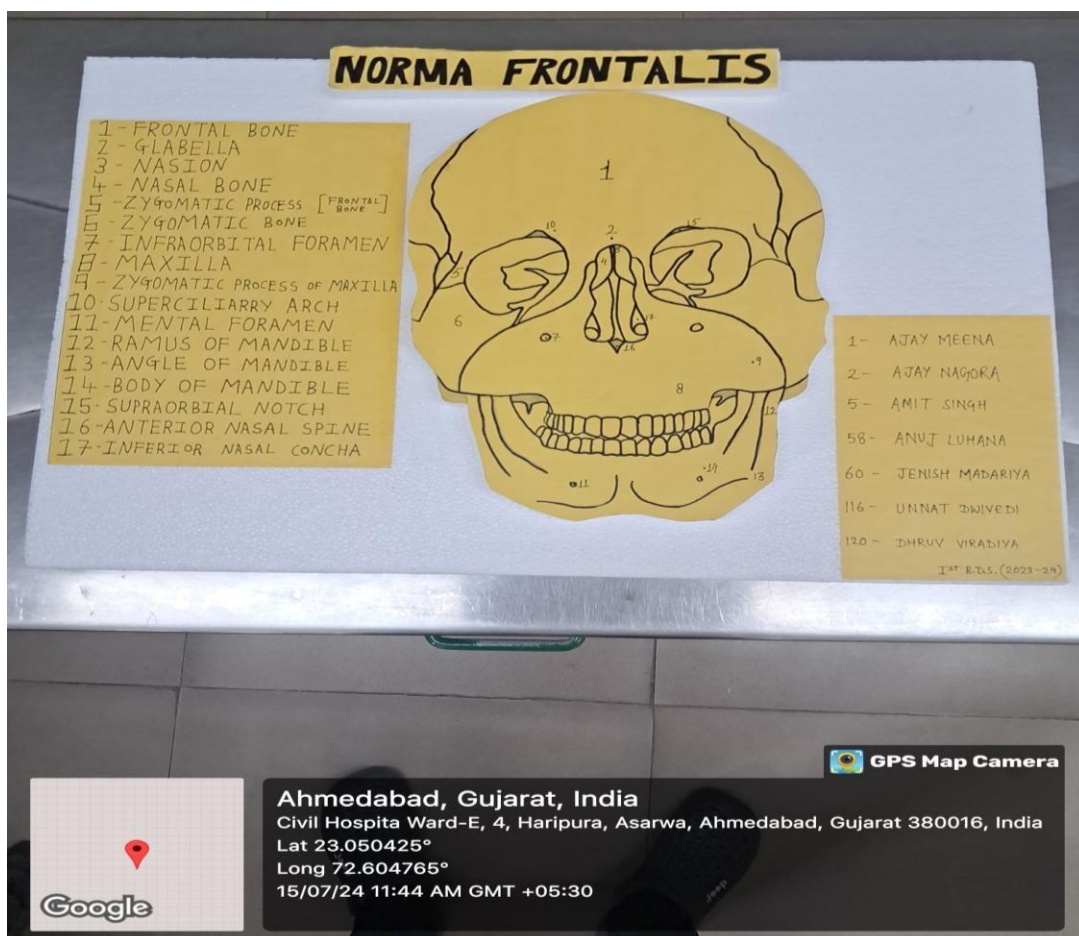 NORMA FRONTALIS
1 - FRONTAL BONE
2 - GLABELLA
3 - NASION
4 - NASAL BONE
5 - ZYGOMATIC PROCESS [FRONTAL BONE]
6 - ZYGOMATIC BONE
7 - INFRAORBITAL FORAMEN
8 - MAXILLA
9 - ZYGOMATIC PROCESS OF MAXILLA
10 - SUPERCILIARRY ARCH
11 - MENTAL FORAMEN
12 - RAMUS OF MANDIBLE
13 - ANGLE OF MANDIBLE
14 - BODY OF MANDIBLE
15 - SUPRAORBIAL NOTCH
16 - ANTERIOR NASAL SPINE
17 - INFERIOR NASAL CONCHA
1
10
2
15
3
4
5
6
7
17
16
9
8
12
14
11
13
1 - AJAY MEENA
2 - AJAY NAGORA
5 - AMIT SINGH
58 - ANUJ LUHANA
60 - JENISH MADARIYA
116 - UNNAT DWIVEDI
120 - DHRUV VIRADIYA
1ST B.D.S. (2023-24)
GPS Map Camera
Ahmedabad, Gujarat, India
Civil Hospita Ward-E, 4, Haripura, Asarwa, Ahmedabad, Gujarat 380016, India
Lat 23.050425°
Long 72.604765°
15/07/24 11:44 AM GMT +05:30
Google
Jeep